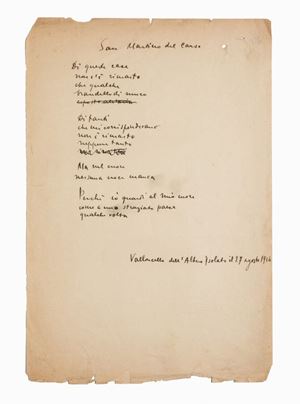 San Martino del Carso
Di queste case
non c'è rimasto
che qualche
brandello di muro
esposto all'aria
Di tanti
che mi corrispondevano
non è rimasto
neppure tanto
Ma nel cuore
nessuna croce manca
Perché io guardi al mio cuore
come a uno straziato paese
qualche volta
Valloncello dell'Albero Isolato il 27 agosto 1916